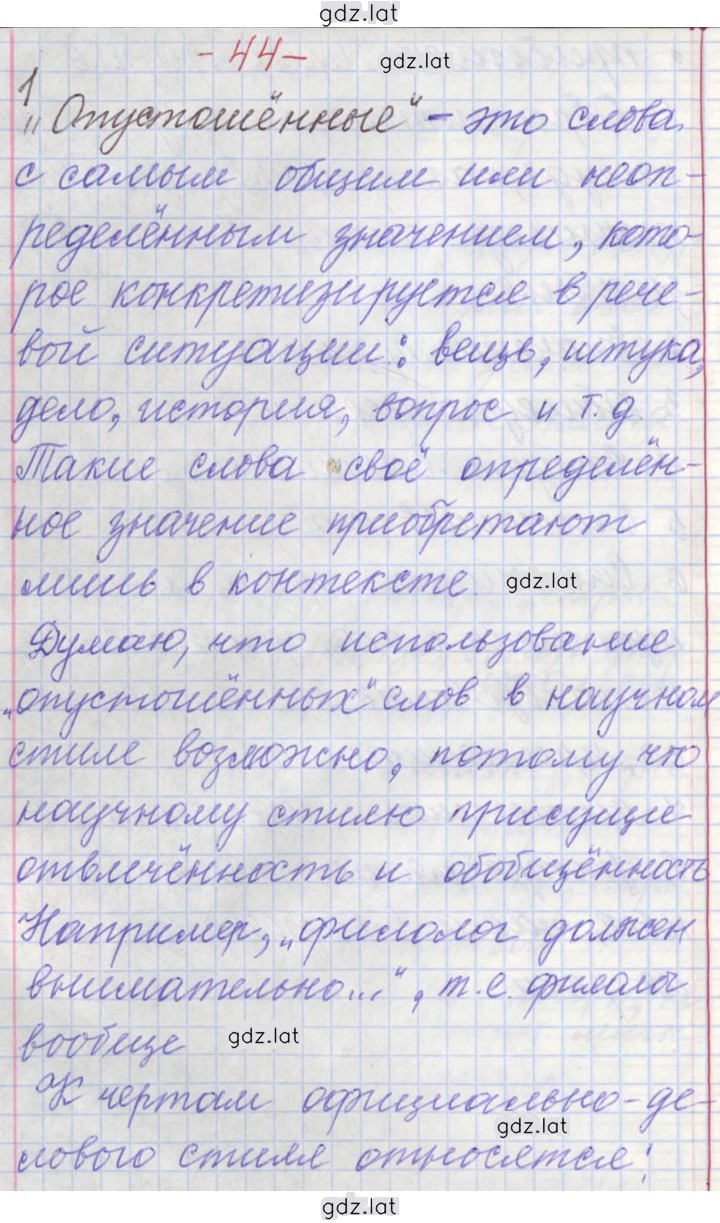 gdz.lat
- 44 -
gdz.lat
1
„Опустошённые“ – это слова
с самым общим или неоп-
ределённым значением, кото-
рое конкретизируется в рече-
вой ситуации: вещь, штука,
дело, история, вопрос и т.д
Такие слова своё определён-
ное значение приобретают
лишь в контексте
gdz.lat
Думаю, что использование
„опустошённых“ слов в научном
стиле возможно, потому что
научному стилю присущи
отвлечённость и обобщённость
Например, „филолог должен
внимательно...“, т.е. филолог
вообще
gdz.lat
К чертам официально-де-
gdz.lat
лового стиля относятся:
gdz.lat